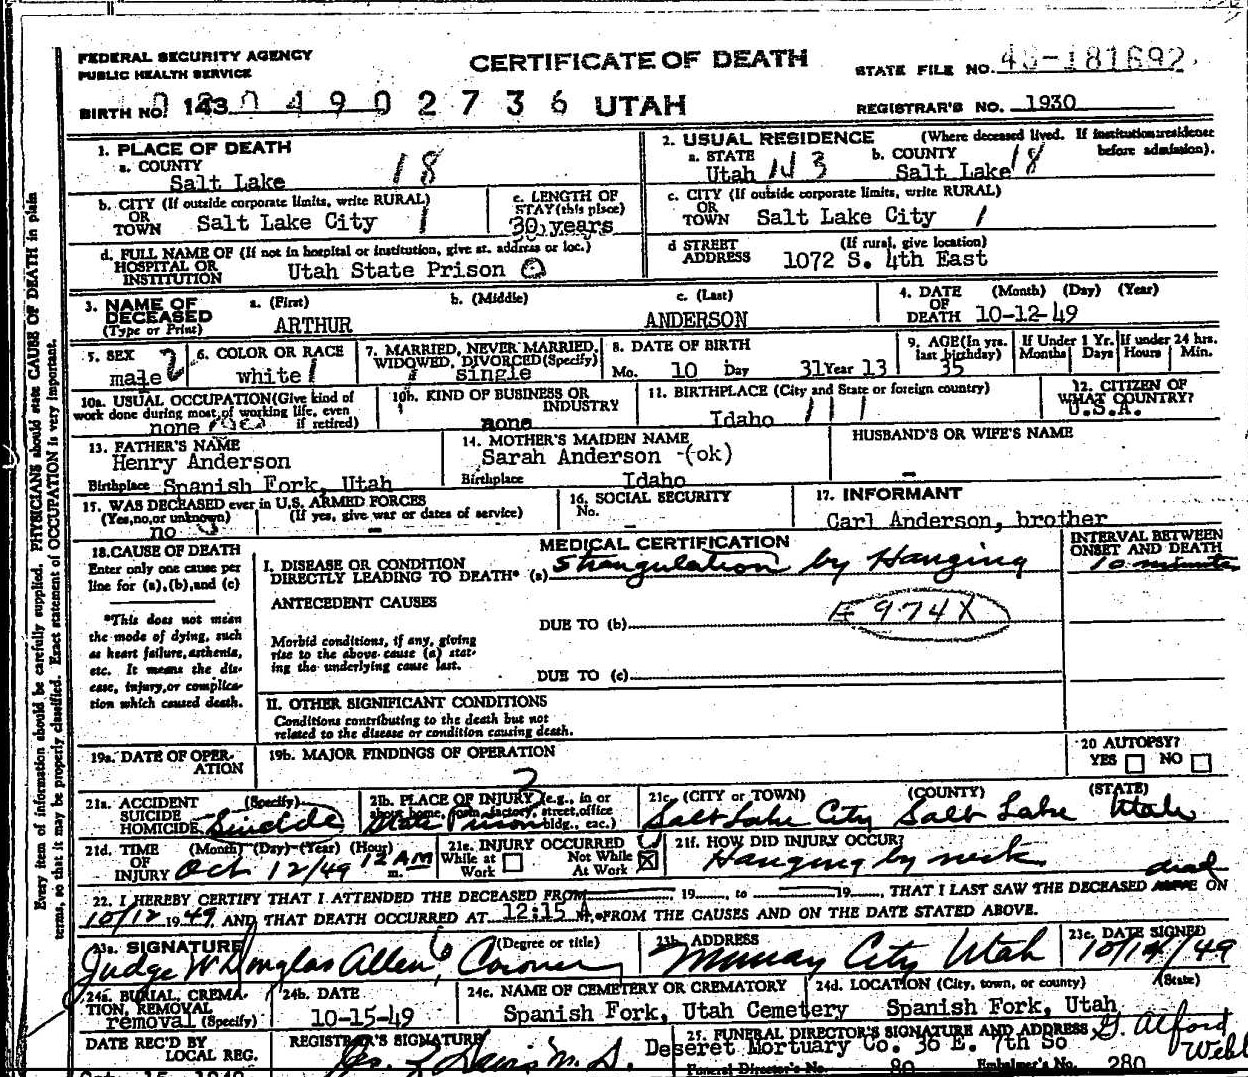 FEDERAL SECURITY AGENCY
PUBLIC HEALTH SERVICE
CERTIFICATE OF DEATH
STATE FILE NO. 49-181692
BIRTH NO. 143 0 4 9 0 2 7 3 6 UTAH
REGISTRAR'S NO. 1930
1. PLACE OF DEATH
a. COUNTY
Salt Lake 18
2. USUAL RESIDENCE (Where deceased lived. If institution: residence before admission).
a. STATE b. COUNTY
Utah 143 Salt Lake 18
b. CITY (If outside corporate limits, write RURAL)
OR
TOWN Salt Lake City 1
c. LENGTH OF
STAY (this place)
30 years
c. CITY (If outside corporate limits, write RURAL)
OR
TOWN Salt Lake City 1
d. FULL NAME OF (If not in hospital or institution, give st. address or loc.)
HOSPITAL OR
INSTITUTION Utah State Prison
d STREET (If rural, give location)
ADDRESS 1072 S. 4th East
3. NAME OF
DECEASED
(Type or Print)
a. (First) b. (Middle) c. (Last)
ARTHUR ANDERSON
4. DATE (Month) (Day) (Year)
OF
DEATH 10-12-49
5. SEX
male 2
6. COLOR OR RACE
white 1
7. MARRIED, NEVER MARRIED,
WIDOWED, DIVORCED (Specify)
single
8. DATE OF BIRTH
Mo. 10 Day 31 Year 13
9. AGE (In yrs.
last birthday)
35
If Under 1 Yr.
Months Days
If under 24 hrs.
Hours Min.
10a. USUAL OCCUPATION (Give kind of
work done during most of working life, even
if retired)
none
10b. KIND OF BUSINESS OR
INDUSTRY
none
11. BIRTHPLACE (City and State or foreign country)
Idaho
12. CITIZEN OF
WHAT COUNTRY?
U.S.A.
13. FATHER'S NAME
Henry Anderson
Birthplace Spanish Fork, Utah
14. MOTHER'S MAIDEN NAME
Sarah Anderson -(ok)
Birthplace Idaho
HUSBAND'S OR WIFE'S NAME
-
15. WAS DECEASED ever in U.S. ARMED FORCES
(Yes, no, or unknown) (If yes, give war or dates of service)
no -
16. SOCIAL SECURITY
No. -
17. INFORMANT
Carl Anderson, brother
18. CAUSE OF DEATH
Enter only one cause per
line for (a), (b), and (c)
*This does not mean
the mode of dying, such
as heart failure, asthenia,
etc. It means the dis-
ease, injury, or complica-
tion which caused death.
MEDICAL CERTIFICATION
INTERVAL BETWEEN
ONSET AND DEATH
I. DISEASE OR CONDITION
DIRECTLY LEADING TO DEATH* (a) Strangulation by Hanging
10 minutes
ANTECEDENT CAUSES
E 974X
DUE TO (b)
Morbid conditions, if any, giving
rise to the above cause (a) stat-
ing the underlying cause last.
DUE TO (c)
II. OTHER SIGNIFICANT CONDITIONS
Conditions contributing to the death but not
related to the disease or condition causing death.
19a. DATE OF OPER-
ATION
19b. MAJOR FINDINGS OF OPERATION
20 AUTOPSY?
YES NO
21a. ACCIDENT (Specify)
SUICIDE
HOMICIDE Suicide
21b. PLACE OF INJURY (e.g., in or
about home, farm, factory, street, office
bldg., etc.)
State Prison
21c. (CITY OR TOWN) (COUNTY) (STATE)
Salt Lake City Salt Lake Utah
21d. TIME (Month) (Day) (Year) (Hour)
OF
INJURY Oct 12/49 12 AM m.
21e. INJURY OCCURRED
While at Work Not While At Work
21f. HOW DID INJURY OCCUR?
Hanging by neck
22. I HEREBY CERTIFY THAT I ATTENDED THE DECEASED FROM 19 , to 19 , THAT I LAST SAW THE DECEASED alive dead ON
10/12 1949, AND THAT DEATH OCCURRED AT 12:15 A. M. FROM THE CAUSES AND ON THE DATE STATED ABOVE.
23a. SIGNATURE (Degree or title)
Judge W Douglas Allen, Coroner
23b. ADDRESS
Murray City Utah
23c. DATE SIGNED
10/14/49
24a. BURIAL, CREMA-
TION, REMOVAL
removal (Specify)
24b. DATE
10-15-49
24c. NAME OF CEMETERY OR CREMATORY
Spanish Fork, Utah Cemetery
24d. LOCATION (City, town, or county) (State)
Spanish Fork, Utah
DATE REC'D BY
LOCAL REG.
REGISTRAR'S SIGNATURE
M.D.
25. FUNERAL DIRECTOR'S SIGNATURE AND ADDRESS G. Alford Webb
Deseret Mortuary Co. 36 E. 7th So
Funeral Director's No. 80 Embalmer's No. 280
Every item of information should be carefully supplied. PHYSICIANS should state CAUSE OF DEATH in plain
terms, so that it may be properly classified. Exact statement of OCCUPATION is very important.